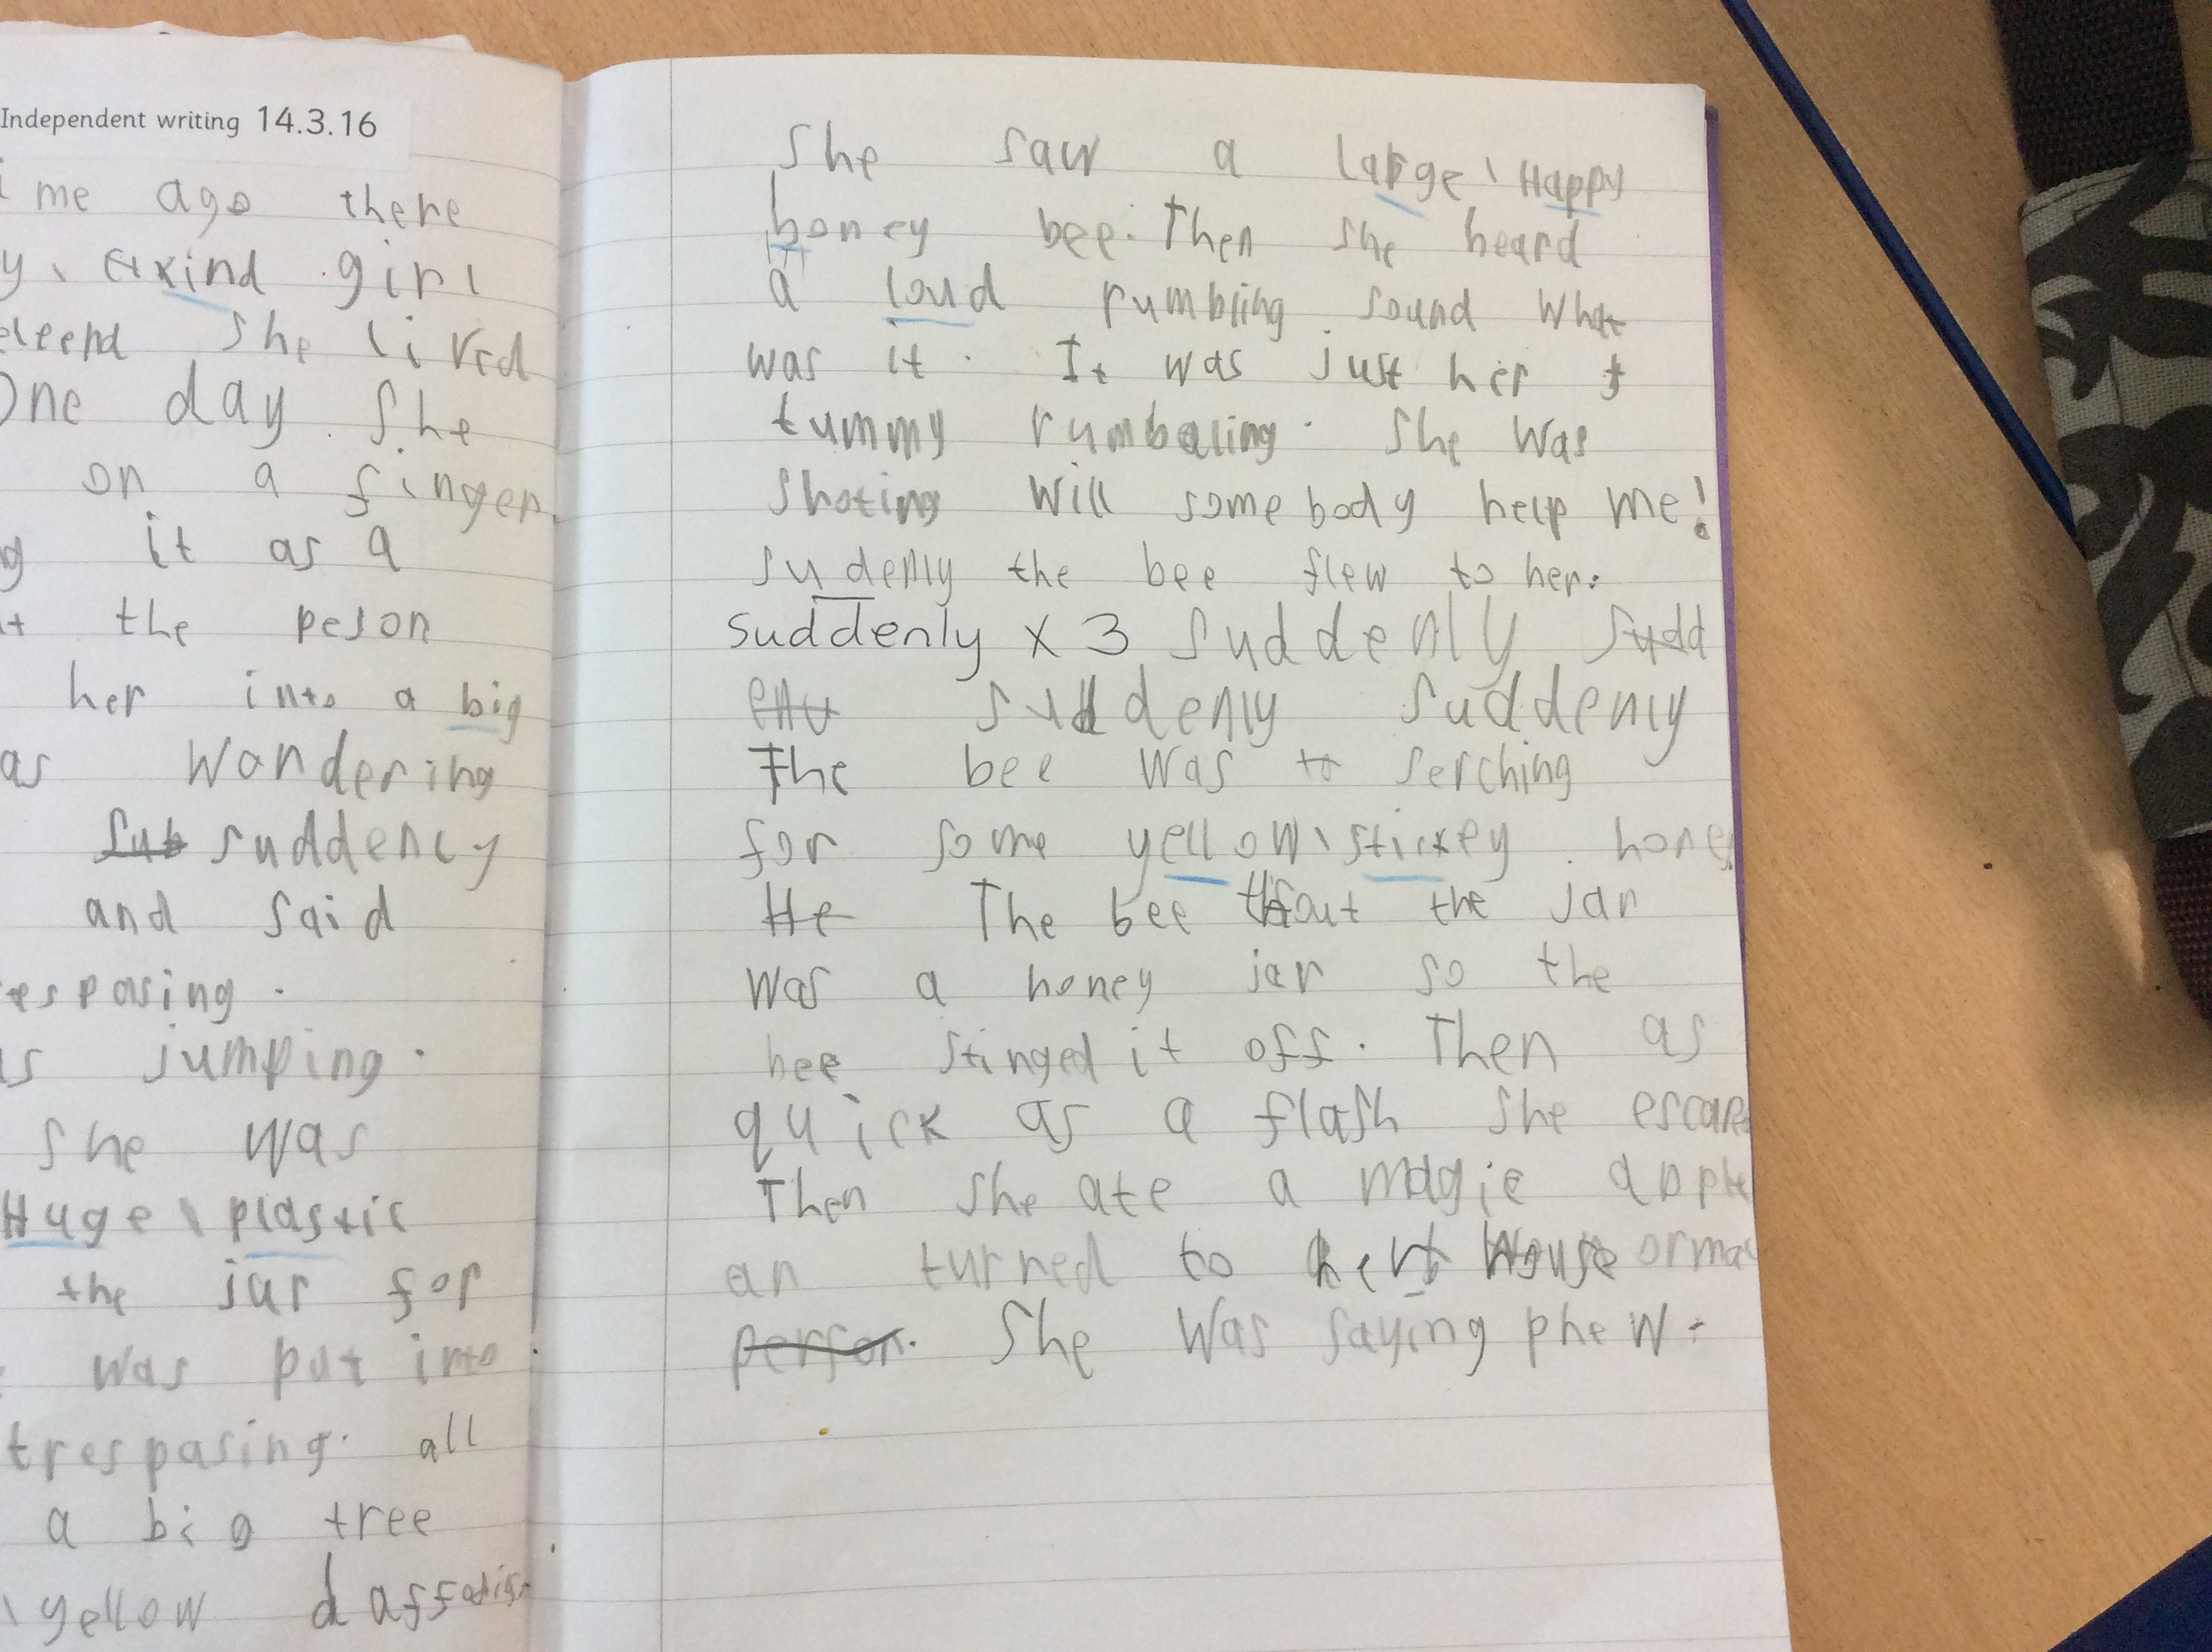 Independent writing 14.3.16
me ago there
y, kind girl
she lived
One day she
on a finger
g it as a
the peson
her into a big
as wondering
Sub suddency
and said
espasing.
is jumping.
she was
Huge, plastic
the jar for
was put into
trespasing. all
a big tree
, yellow
She saw a large, Happy
honey bee. Then she heard
a loud rumbling sound What
was it. It was just her t
tummy rumbaling. She Was
Shoting Will somebody help me!
sudenly the bee flew to her.
suddenly x 3 Suddenly Sudd
enu suddenly Suddenly
The bee was to serching
for some yellow, stickey hone
He The bee the jar
was a honey jar so the
bee stinged it off. Then as
quick as a flash she escape
Then she ate a magic apple
an turned to
person. She was saying phew.